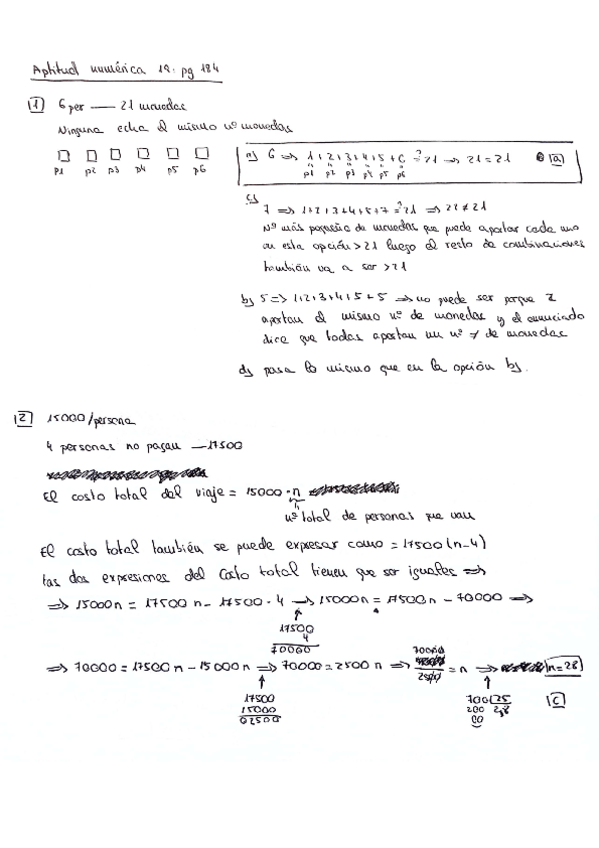 Aptitud numérica 19. pg 184
1 6 per — 21 monedas
Ninguna echa el mismo nº monedas
p1 p2 p3 p4 p5 p6
a) 6 ⇒ 1+2+3+4+5+6 ?= 21 → 21=21 a
p1 p2 p3 p4 p5 p6
c)
7 ⇒ 1+2+3+4+5+7 ?= 21 ⇒ 22≠21
Nº más pequeño de monedas que puede aportar cada uno
en esta opción >21 luego el resto de combinaciones
también va a ser >21
b) 5 ⇒ 1+2+3+4+5+5 ⇒ no puede ser porque 2
aportan el mismo nº de monedas y el enunciado
dice que todas aportan un nº ≠ de monedas
d) pasa lo mismo que en la opción b).
2 15000/persona
4 personas no pagan — 17500
El costo total del viaje = 15000·n
nº total de personas que van
El costo total también se puede expresar como = 17500(n-4)
Las dos expresiones del costo total tienen que ser iguales ⇒
⇒ 15000n = 17500n - 17500·4 → 15000n = 17500n - 70000 ⇒
17500
4
70000
⇒ 70000 = 17500n - 15000n ⇒ 70000 = 2500n ⇒ 70000/2500 = n → n=28
17500
15000
02500
700 25
200 2,8
00
c